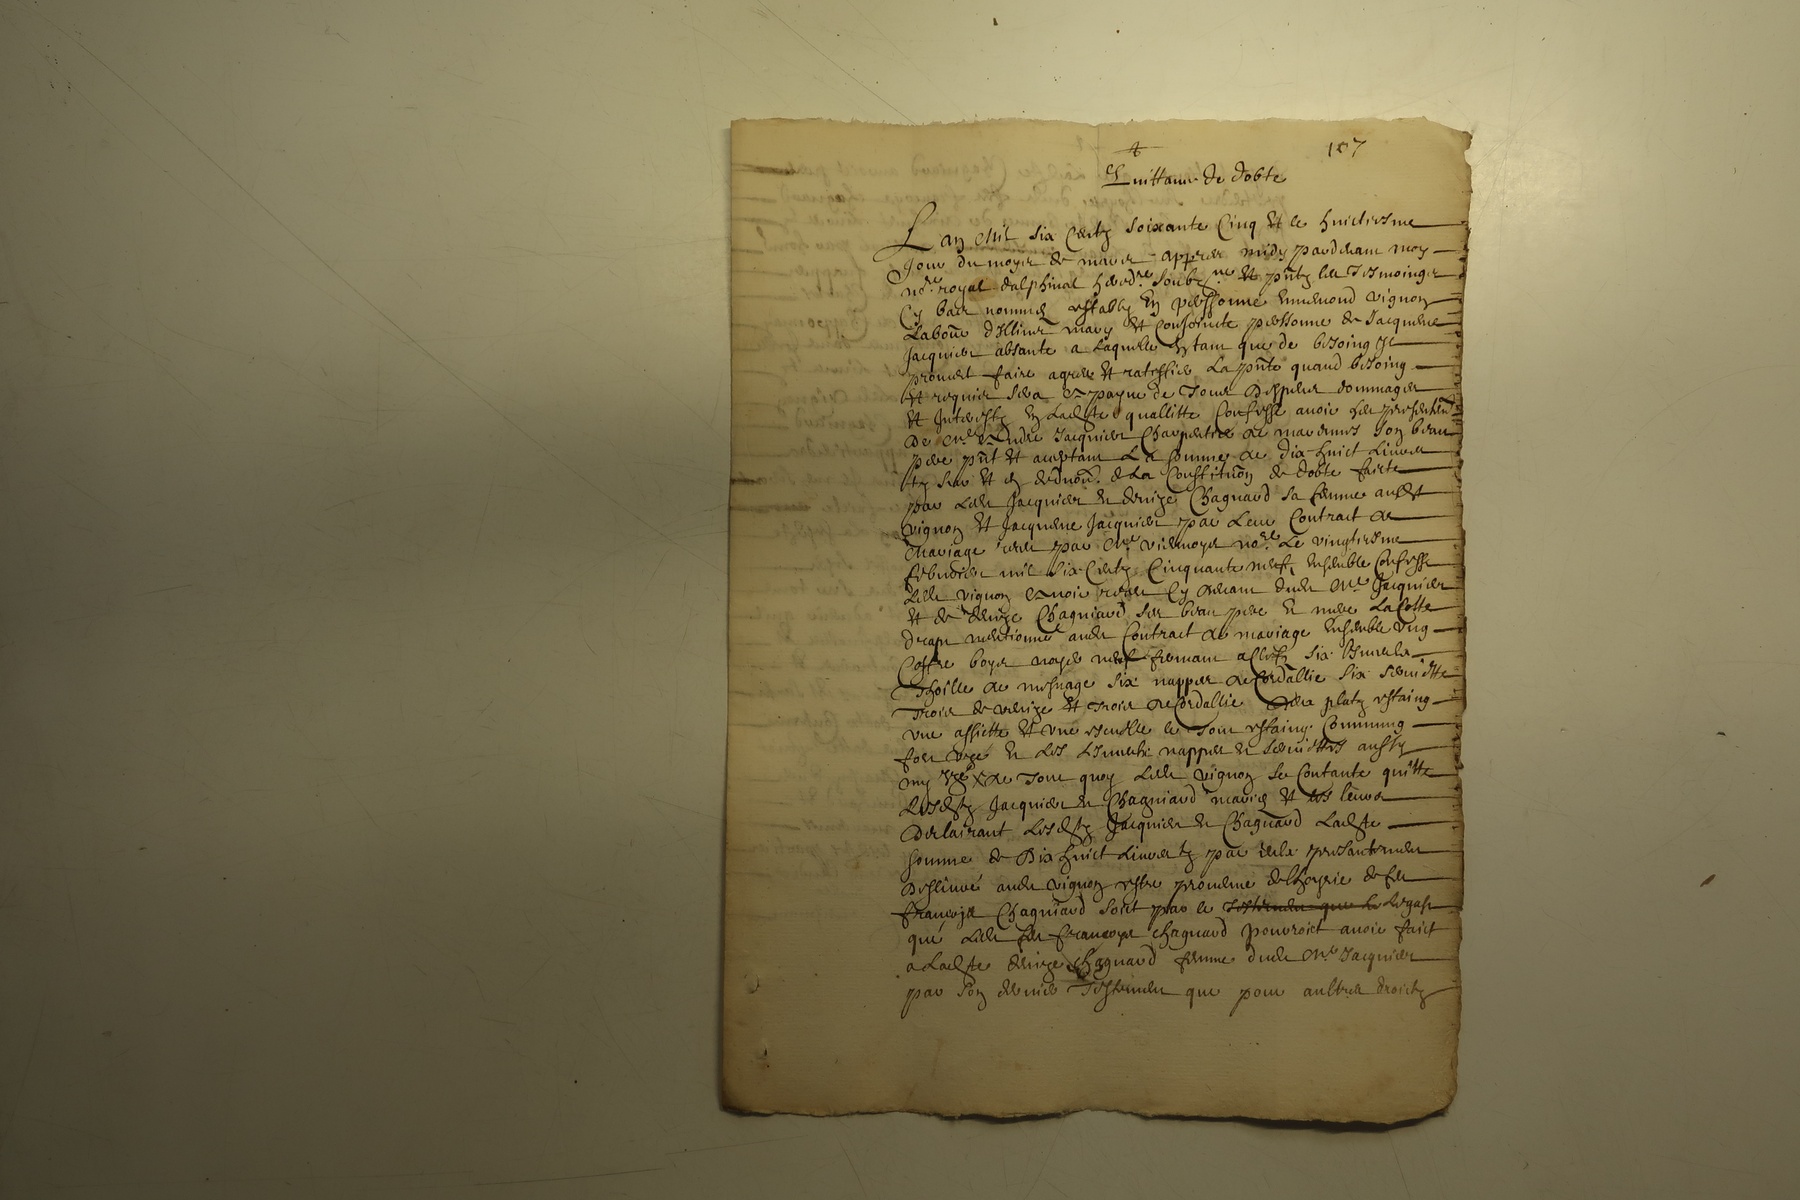 107
Quittance de dobte
L an Mil six Centz soixante Cinq Et le huictiesme
Jour du moys de mars appres midy pardevant moy
no.re royal dalphinal hered.re soubz.ne Et pñtz les tesmoings
Cy bas nommes estably En personne Ennemond vignon
Labour mary Et Conjoincte personne de Jacqueme
Jacquier absante a Laquelle Entant que de besoing
promect faire agreer Et ratiffier La pñte quand besoing
Et requis sera a payne de Tous despens dommages
Et Interestz En Ladste quallitte Confesse avoir
De M.e Andre Jacquier Charpentier de son beau
pere pñt Et acceptant La somme de dix huict Livres
Et de La Constituõn de dobte faicte
par Led Jacquier Et denize Chagnard sa femme ausdt
vignon Et Jacqueme Jacquier par Leur Contract de
Mariage receu par M.e no.re Le vingtiesme
febvrier mil six Centz Cinquante neuf, Ensemble Confesse
Ledt vignon avoir receu Cy devant dudt M.e Jacquier
Et de denize Chagniard ses beau pere Et mere La Cotte
drapt mentionné audt Contract de mariage Ensemble ung
Coffre boys noyer neuf fermant a Clefz six Linceulx
Thoille de mesnage six nappes de Cordallie six serviette
Trois de Et Trois de Cordallie deux platz estaing
une assiette Et une escuelle le Tout estaing Commung
fort usé Et Les Linceulx nappes Et serviettes aussy
my usé de Tout quoy Ledt vignon se Contante quitte
Lesdstz Jacquier Et Chagniard mariés Et les leurs
Desclairant Lesdstz Jacquier Et Chagnard Ladste
somme de Dix huict Livres par
Deslivré audt vignon estre de feu
francoys Chagniard soit par le Legast
que Ledt feu francoys Chagnard pouvroict avoir faict
a Ladste denize Chagnard femme dudt M.e Jacquier
par son dernier Testament que pour aultres droictz